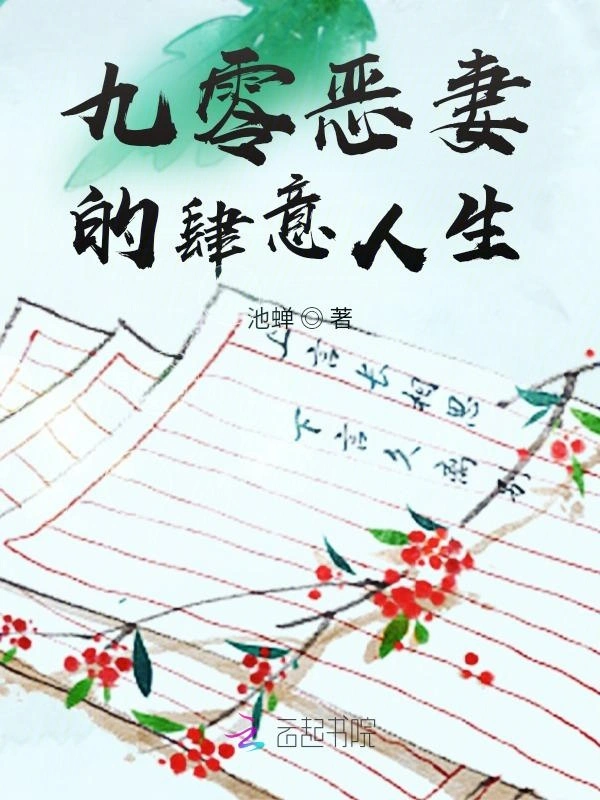 九零恶妻
的肆意人生
池蝉◎著
上言长相思
下言久离别
云起书院